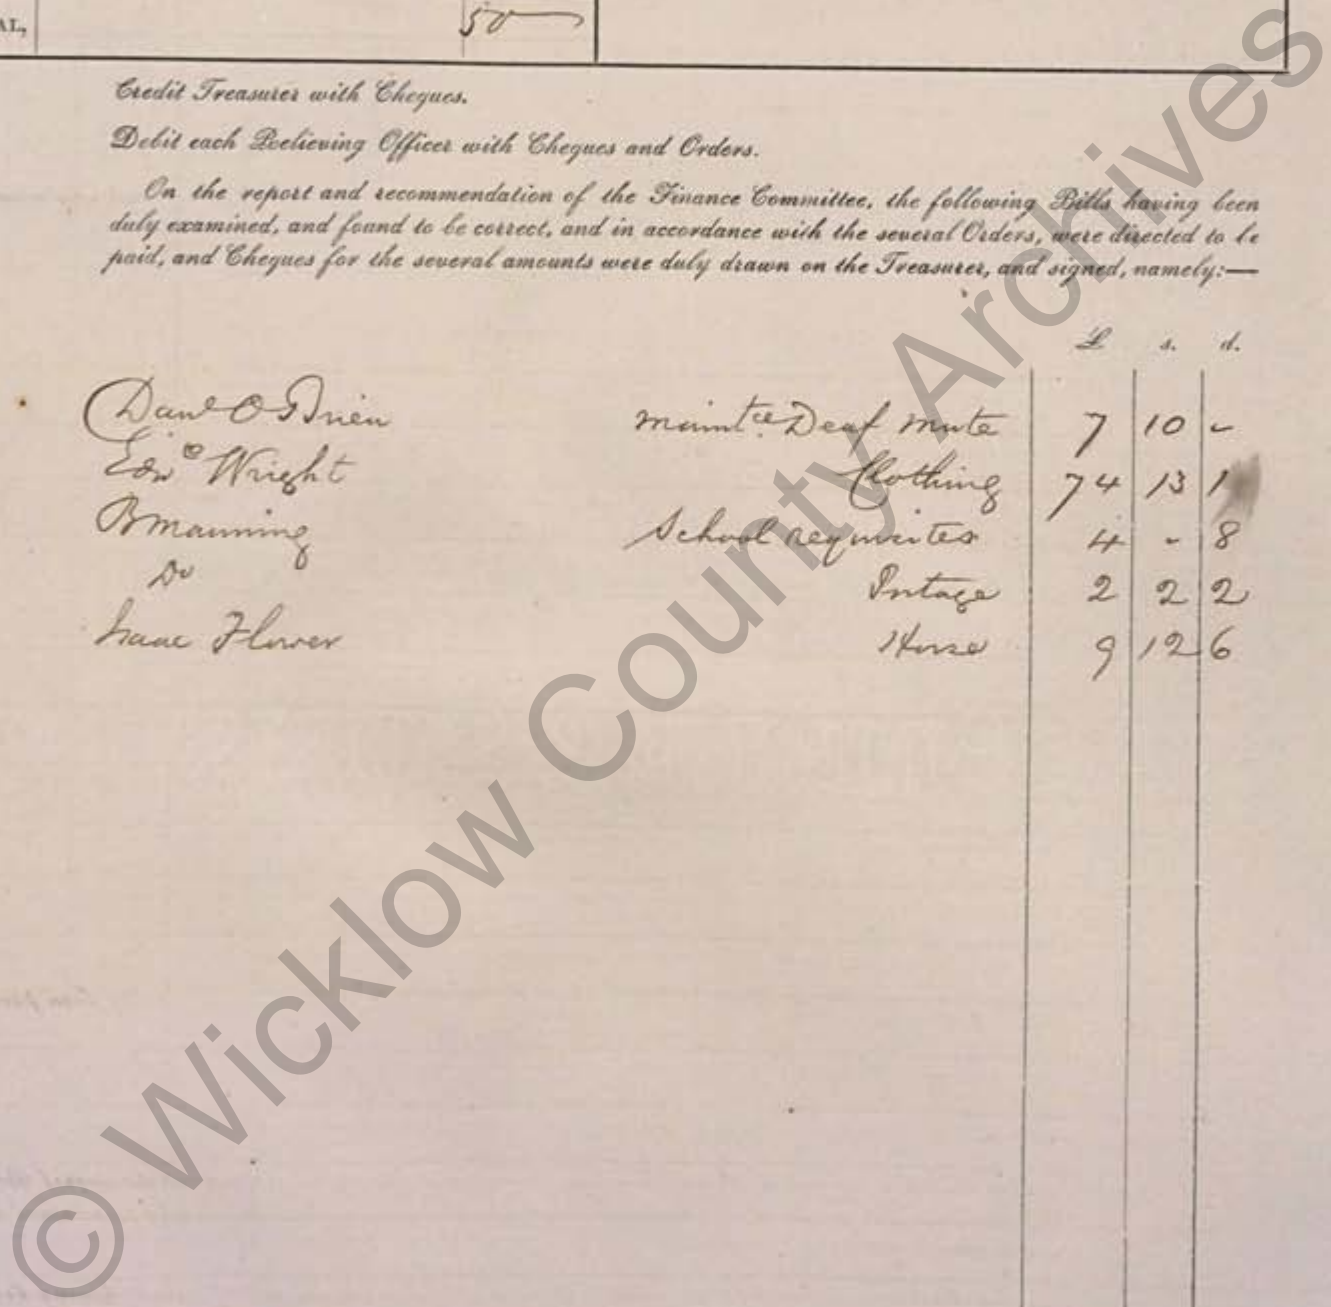 AL,
50
Credit Treasurer with Cheques.
Debit each Relieving Officer with Cheques and Orders.
On the report and recommendation of the Finance Committee, the following Bills having been
duly examined, and found to be correct, and in accordance with the several Orders, were directed to be
paid, and Cheques for the several amounts were duly drawn on the Treasurer, and signed, namely:—
£ s. d.
Danl O'Brien Maintce. Deaf Mute 7 10 -
Edwd Wright Clothing 74 13 1
B Manning School requisites 4 - 8
Do 2 2 2
Isaac Flower Horse 9 12 6
© Wicklow County Archives